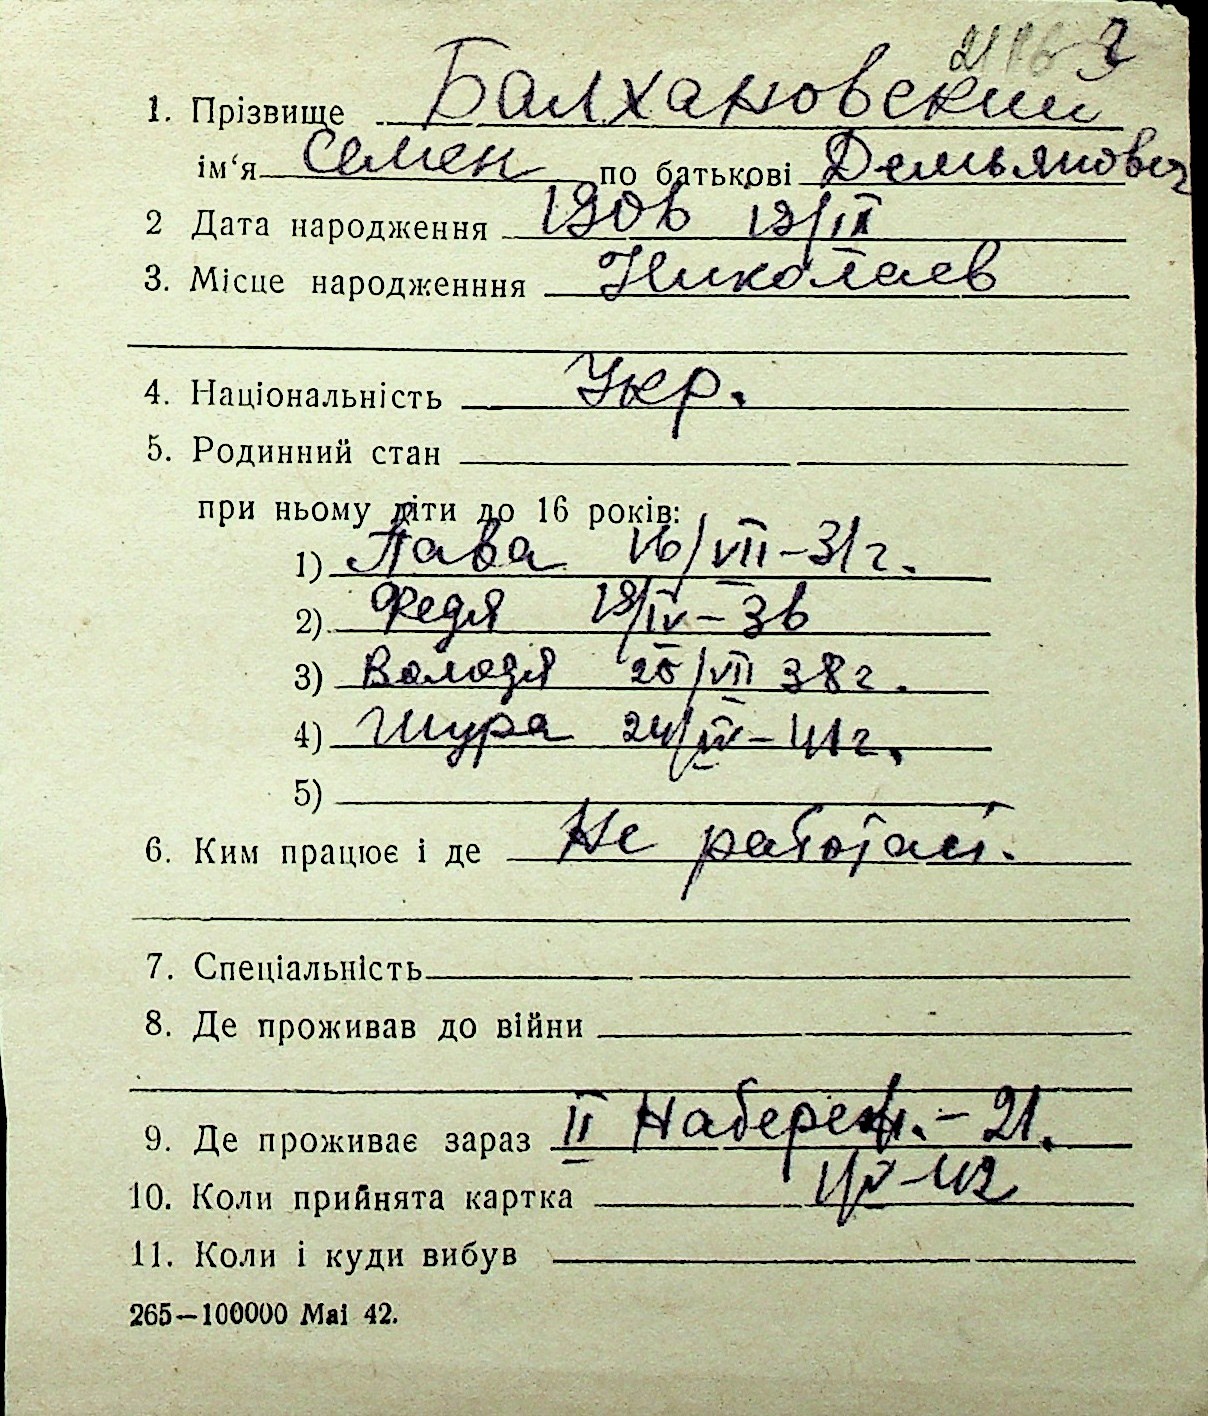 1. Прізвище Балхановский
ім‘я Семен по батькові Демьянович
2 Дата народження 1906 19/IX
3. Місце народженння Николаев
4. Національність Укр.
5. Родинний стан
при ньому діти до 16 років:
1) Пава 16/VII-31г.
2) Федя 19/IV-36
3) Володя 25/VII 38г.
4) Шура 24/IV-41г.
5)
6. Ким працює і де Не работает.
7. Спеціальність
8. Де проживав до війни
9. Де проживає зараз II Набереж.-21.
10. Коли прийнята картка
11. Коли і куди вибув
265—100000 Mai 42.